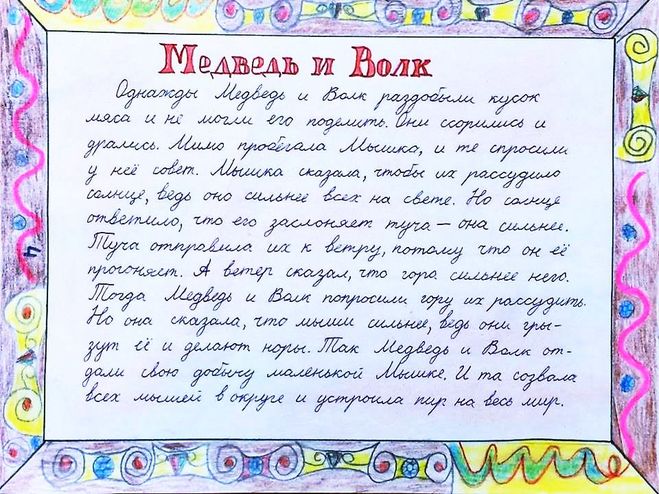 Медведь и Волк
Однажды Медведь и Волк раздобыли кусок
мяса и не могли его поделить. Они ссорились и
дрались. Мимо пробегала Мышка, и те спросили
у неё совет. Мышка сказала, чтобы их рассудило
солнце, ведь оно сильнее всех на свете. Но солнце
ответило, что его заслоняет туча — она сильнее.
Туча отправила их к ветру, потому что он её
прогоняет. А ветер сказал, что гора сильнее него.
Тогда Медведь и Волк попросили гору их рассудить.
Но она сказала, что мыши сильнее, ведь они гры-
зут её и делают норы. Так Медведь и Волк от-
дали свою добычу маленькой Мышке. И та созвала
всех мышей в округе и устроила пир на весь мир.
4